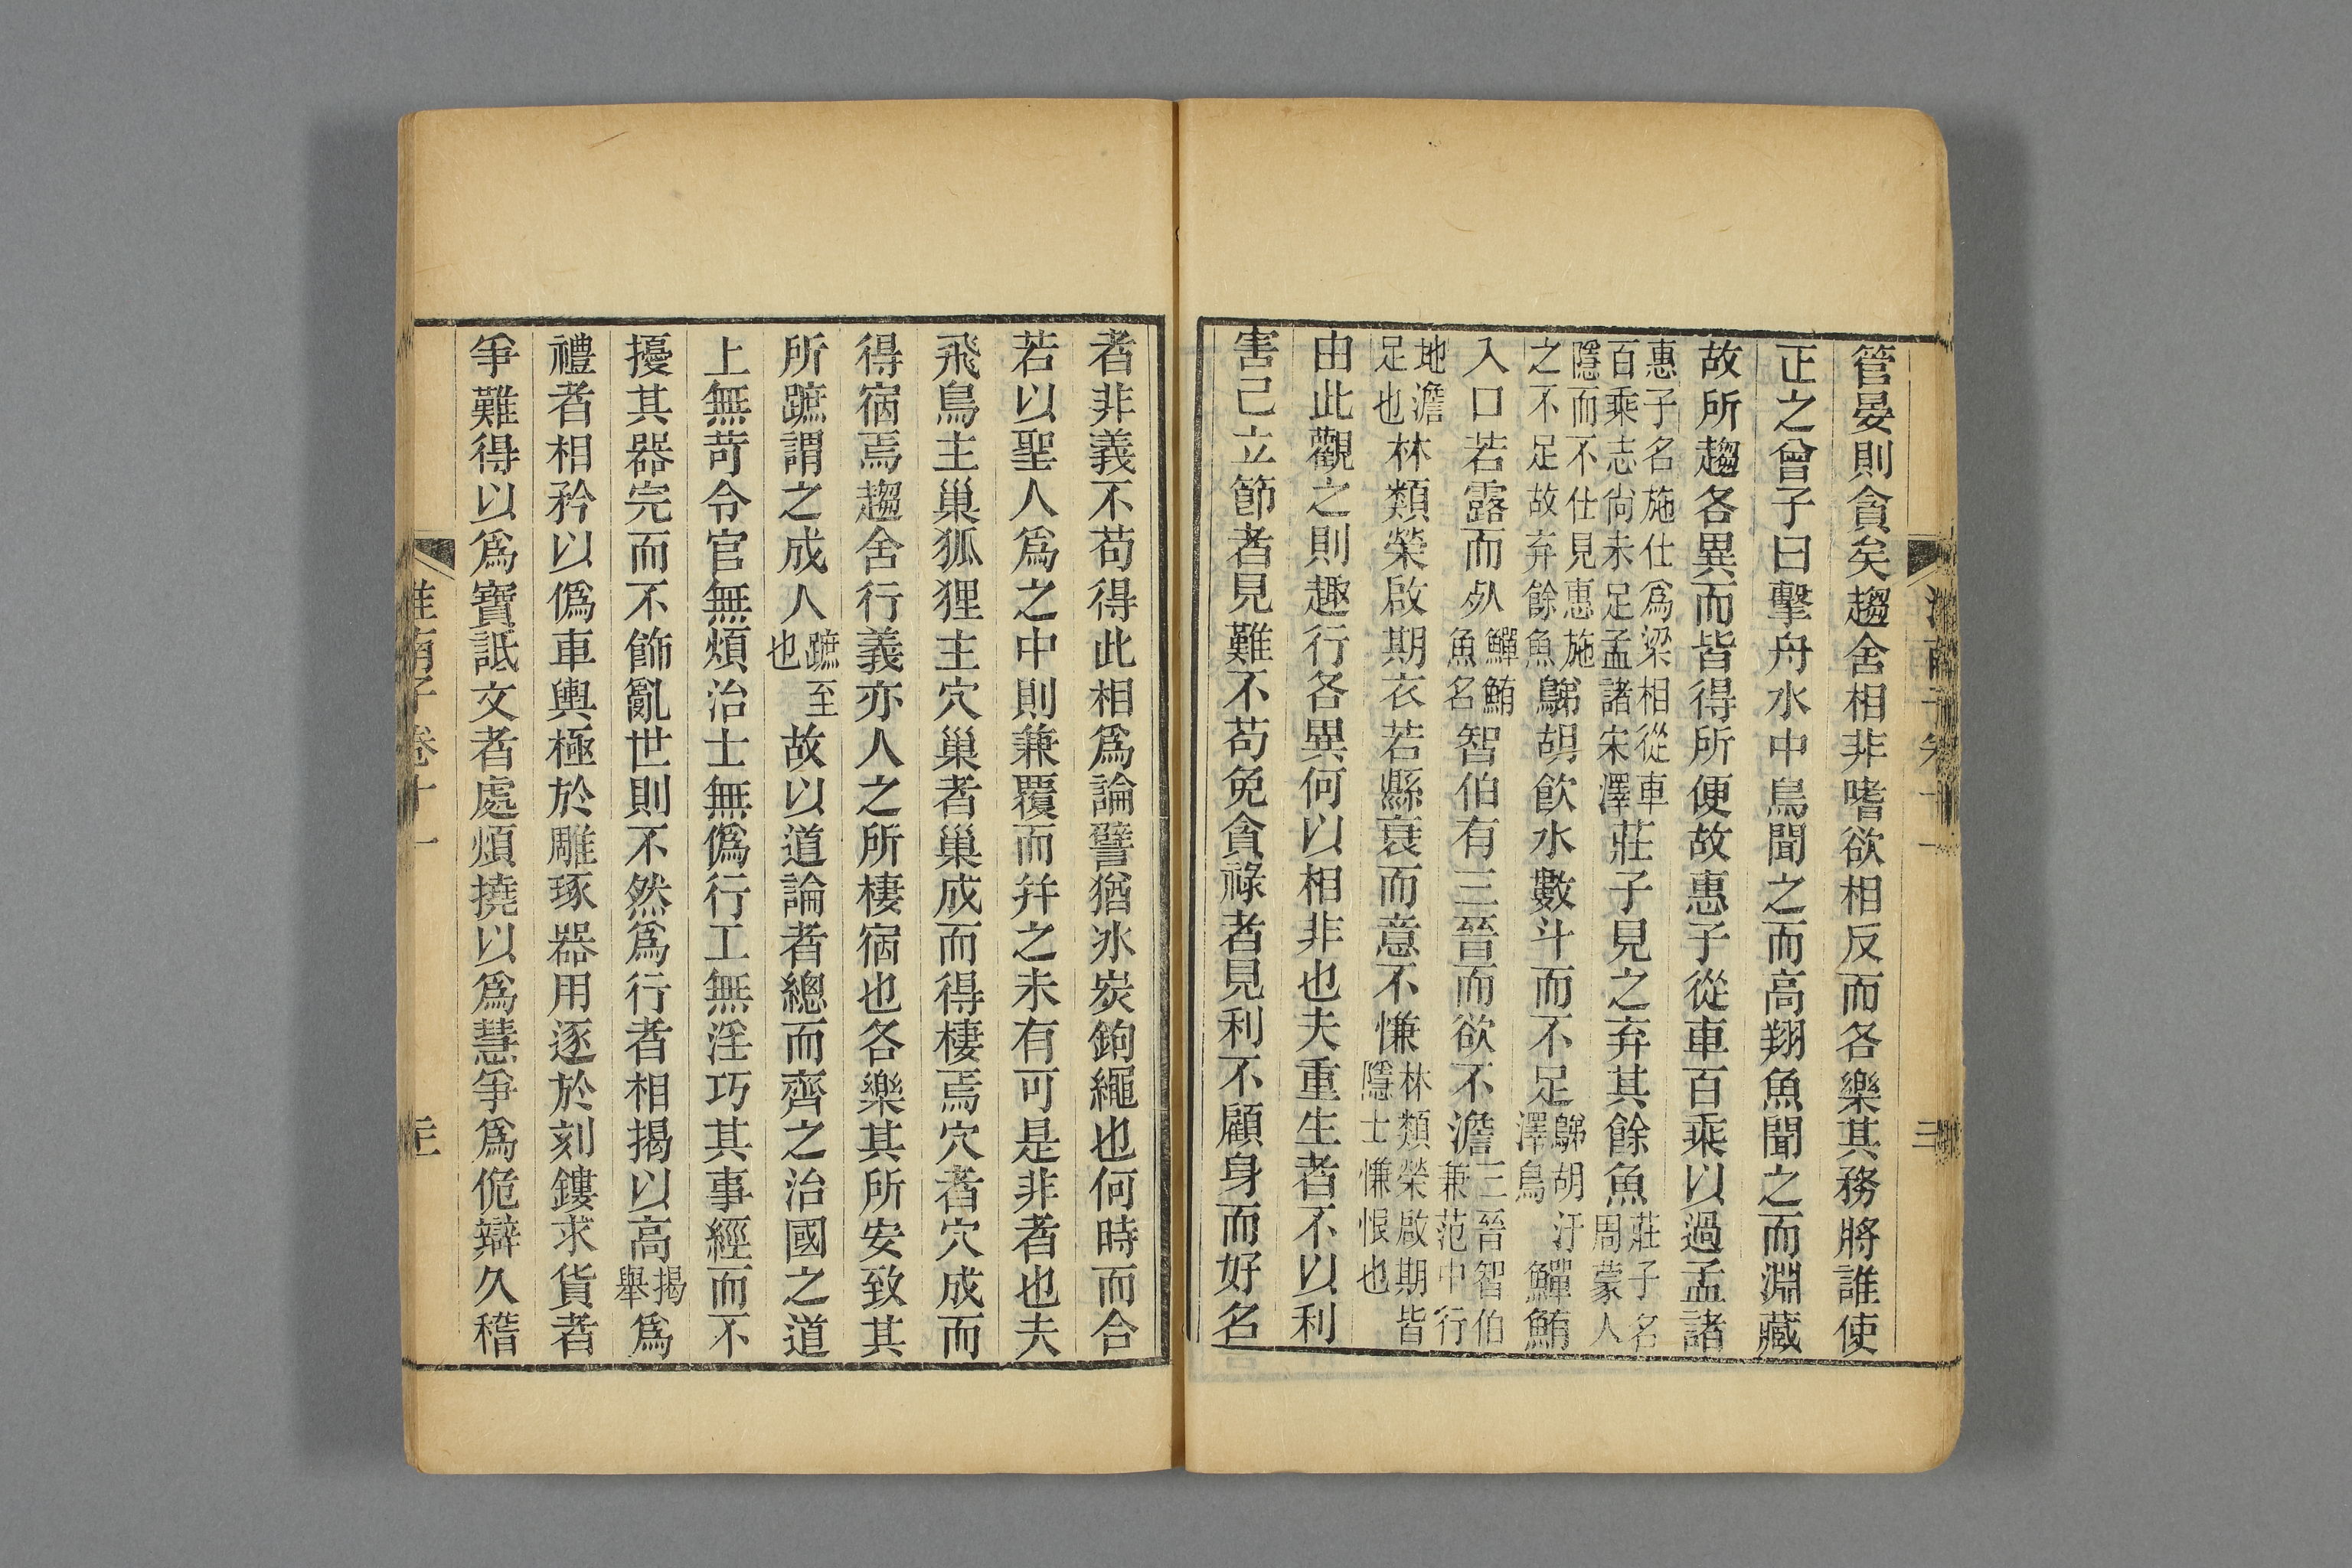 管晏則貪矣趨舍相非嗜欲相反而各樂其務將誰使
正之曾子曰擊舟水中鳥聞之而高翔魚聞之而淵藏
故所趨各異而皆得所便故惠子從車百乘以過孟諸
惠子名施仕爲梁相從車百乘志尙未足孟諸宋澤莊子見之弃其餘魚莊子名周蒙人
隱而不仕見惠施之不足故弃餘魚鵜胡飲水數斗而不足鵜胡汙澤鳥鱓鮪
入口若露而𣦸鱓鮪魚名智伯有三晉而欲不澹三晉智伯兼范中行
地澹足也林類榮啟期衣若縣衰而意不慊林類榮啟期皆隱士慊恨也
由此觀之則趣行各異何以相非也夫重生者不以利
害己立節者見難不苟免貪祿者見利不顧身而好名
者非義不苟得此相爲論譬猶冰炭鉤繩也何時而合
若以聖人爲之中則兼覆而幷之未有可是非者也夫
飛鳥主巢狐狸主穴巢者巢成而得棲焉穴者穴成而
得宿焉趨舍行義亦人之所棲宿也各樂其所安致其
所蹠謂之成人蹠至也故以道論者總而齊之治國之道
上無苛令官無煩治士無僞行工無淫巧其事經而不
擾其器完而不飾亂世則不然爲行者相揭以高揭舉爲
禮者相矜以僞車輿極於雕琢器用逐於刻鏤求貨者
爭難得以爲寶詆文者處煩撓以爲慧爭爲佹辯久稽
淮南子卷十一